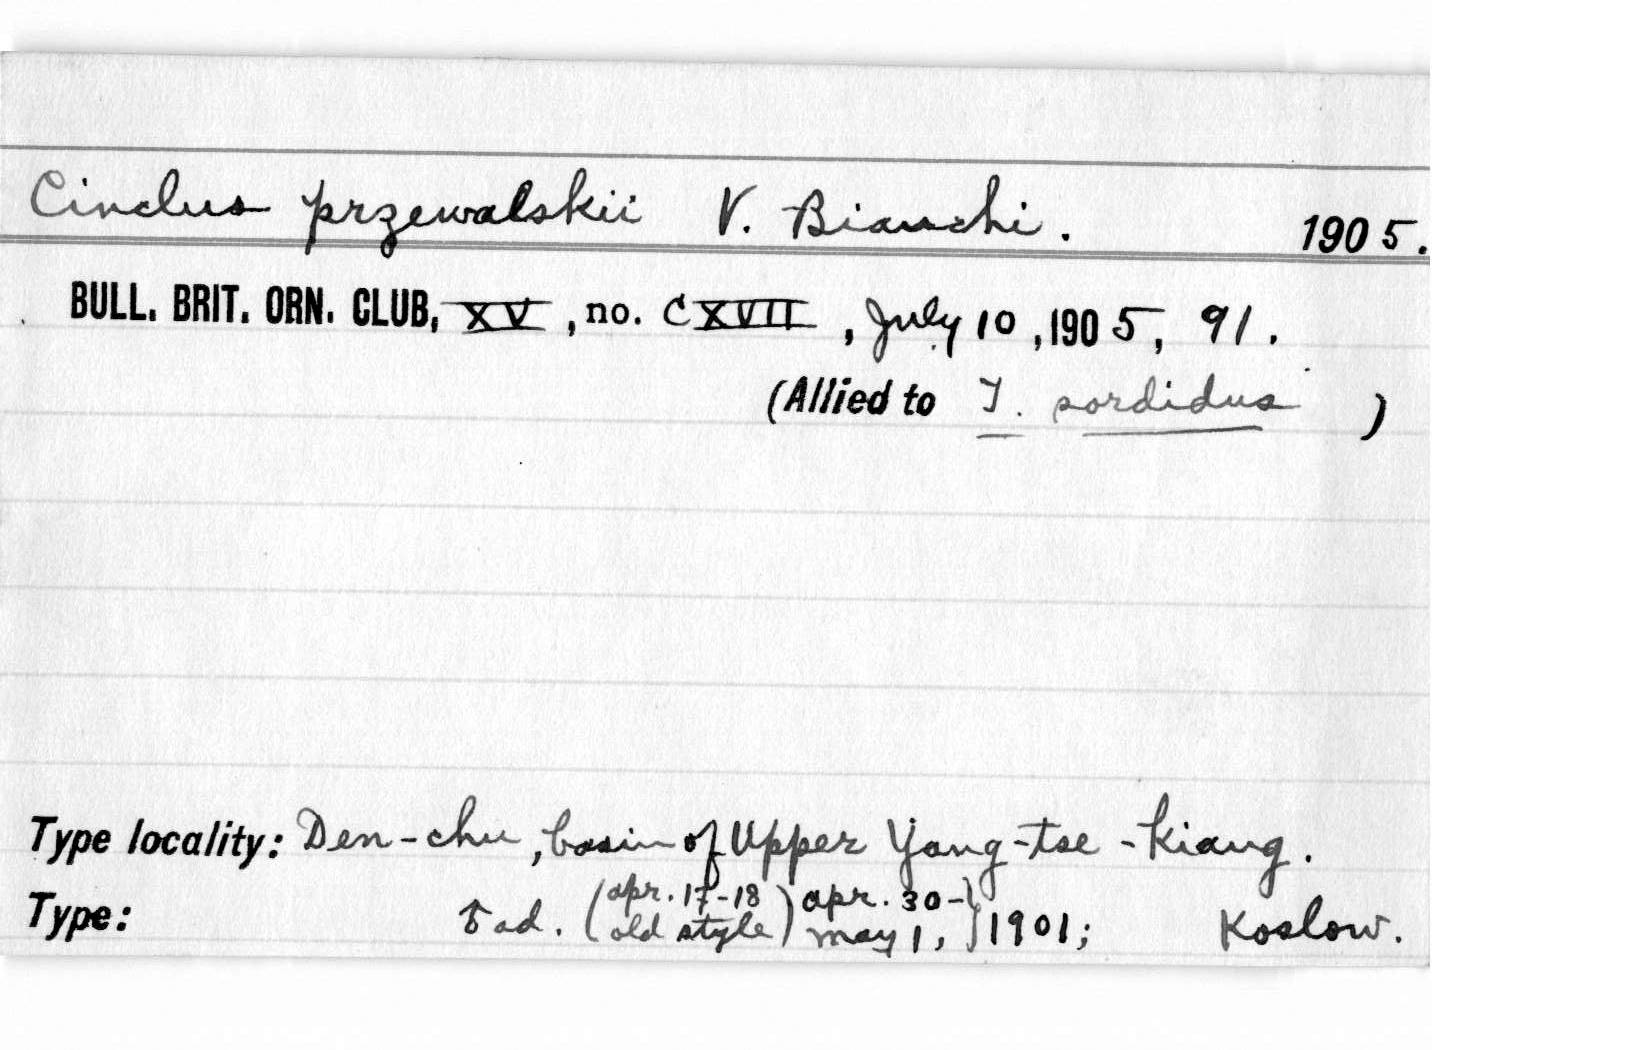 Cinclus przewalskii V. Bianchi. 1905.
BULL. BRIT. ORN. CLUB, XV, no. CXVII, July 10, 1905, 91.
(Allied to J. sordidus)
Type locality: Den-chu, basin of Upper Yang-tse-kiang.
Type: ad. (apr. 17-18 old style) apr. 30-may 1, } 1901; Koslow.